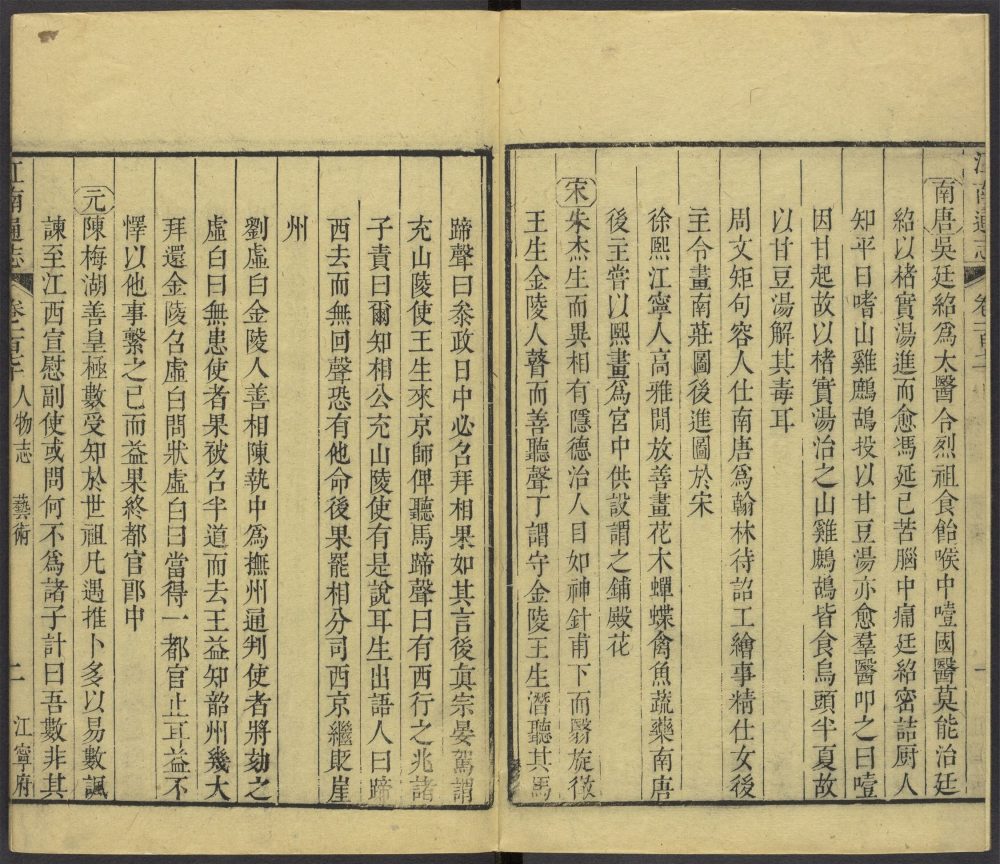 江南通志 卷一百七十 一
南唐吳廷紹爲太醫令烈祖食飴喉中噎國醫莫能治廷
紹以楮實湯進而愈馮延已苦腦中痛廷紹密詰廚人
知平日嗜山雞鷓鴣投以甘豆湯亦愈羣醫叩之曰噎
因甘起故以楮實湯治之山雞鷓鴣皆食烏頭半夏故
以甘豆湯解其毒耳
周文矩句容人仕南唐爲翰林待詔工繪事精仕女後
主令畫南莊圖後進圖於宋
徐熙江寧人高雅閒放善畫花木蟬蝶禽魚蔬藥南唐
後主嘗以熙畫爲宮中供設謂之鋪殿花
宋朱杰生而異相有隱德治人目如神針甫下而翳旋徹
王生金陵人瞽而善聽聲丁謂守金陵王生潛聽其馬
蹄聲曰叅政日中必召拜相果如其言後眞宗晏駕謂
充山陵使王生來京師俾聽馬蹄聲曰有西行之兆諸
子責曰爾知相公充山陵使有是說耳生出語人曰蹄
西去而無回聲恐有他命後果罷相分司西京繼貶崖
州
劉虛白金陵人善相陳執中爲撫州通判使者將劾之
虛白曰無患使者果被召半道而去王益知韶州幾大
拜還金陵召虛白問狀虛白曰當得一都官止耳益不
懌以他事繫之已而益果終都官郎中
元陳梅湖善皇極數受知於世祖凡遇推卜多以易數諷
諫至江西宣慰副使或問何不爲諸子計曰吾數非其
江南通志 卷一百七十 人物志 藝術 二 江寧府